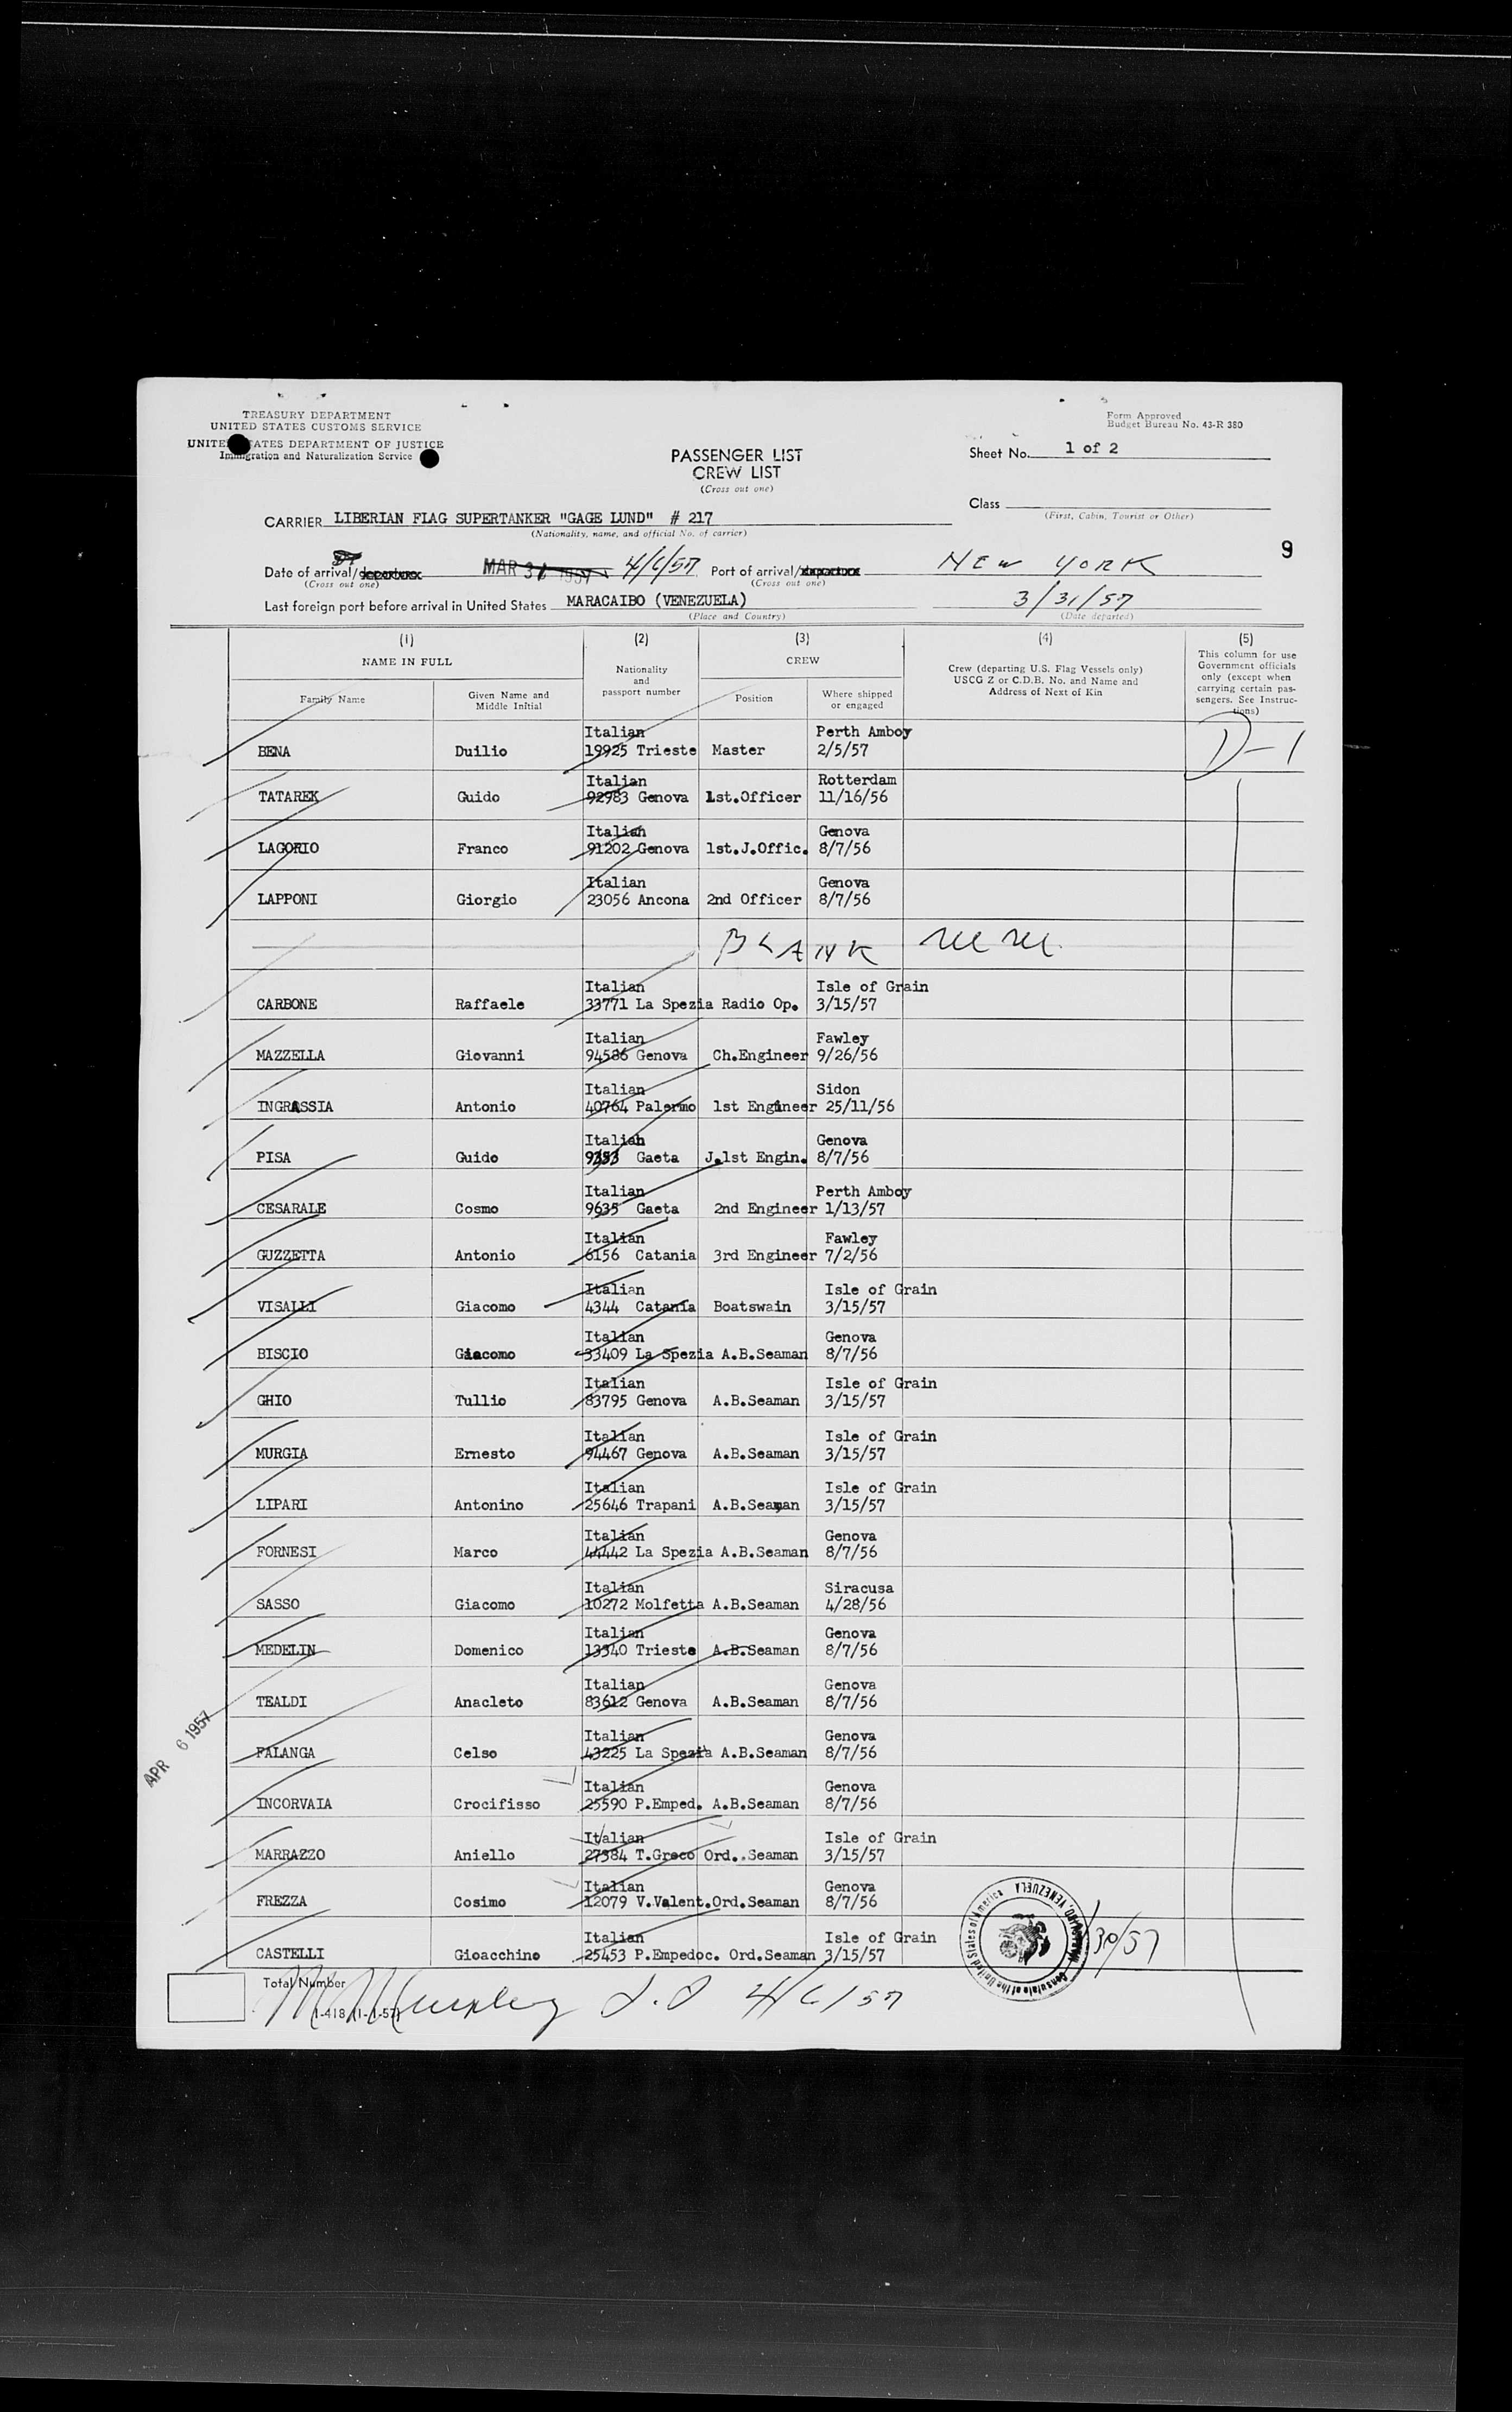 TREASURY DEPARTMENT
UNITED STATES CUSTOMS SERVICE
UNITED STATES DEPARTMENT OF JUSTICE
Immigration and Naturalization Service
Form Approved
Budget Bureau No. 43-R 380
PASSENGER LIST
CREW LIST
(Cross out one)
Sheet No. 1 of 2
Class
(First, Cabin, Tourist or Other)
CARRIER LIBERIAN FLAG SUPERTANKER "GAGE LUND" # 217
(Nationality, name, and official No. of carrier)
9
Date of arrival/departure MAR 31 1957 4/6/57 Port of arrival/departure NEW YORK
(Cross out one) (Cross out one)
Last foreign port before arrival in United States MARACAIBO (VENEZUELA) 3/31/57
(Place and Country) (Date departed)
(1) (2) (3) (4) (5)
NAME IN FULL
Family Name
Given Name and Middle Initial
Nationality and passport number
CREW
Position
Where shipped or engaged
Crew (departing U.S. Flag Vessels only)
USCG Z or C.D.B. No. and Name and
Address of Next of Kin
This column for use
Government officials
only (except when
carrying certain pas-
sengers. See Instruc-
tions)
Italian Perth Amboy
BENA Duilio 19925 Trieste Master 2/5/57 D-1
Italian Rotterdam
TATAREK Guido 92983 Genova 1st.Officer 11/16/56
Italian Genova
LAGORIO Franco 91202 Genova 1st.J.Offic. 8/7/56
Italian Genova
LAPPONI Giorgio 23056 Ancona 2nd Officer 8/7/56
BLANK
Italian Isle of Grain
CARBONE Raffaele 33771 La Spezia Radio Op. 3/15/57
Italian Fawley
MAZZELLA Giovanni 94586 Genova Ch.Engineer 9/26/56
Italian Sidon
INGRASSIA Antonio 40764 Palermo 1st Engineer 25/11/56
Italian Genova
PISA Guido Gaeta J.1st Engin. 8/7/56
Italian Perth Amboy
CESARALE Cosmo 9635 Gaeta 2nd Engineer 1/13/57
Italian Fawley
GUZZETTA Antonio 6156 Catania 3rd Engineer 7/2/56
Italian Isle of Grain
VISALLI Giacomo 4344 Catania Boatswain 3/15/57
Italian Genova
BISCIO Giacomo 33409 La Spezia A.B.Seaman 8/7/56
Italian Isle of Grain
GHIO Tullio 83795 Genova A.B.Seaman 3/15/57
Italian Isle of Grain
MURGIA Ernesto 94467 Genova A.B.Seaman 3/15/57
Italian Isle of Grain
LIPARI Antonino 25646 Trapani A.B.Seaman 3/15/57
Italian Genova
FORNESI Marco 44442 La Spezia A.B.Seaman 8/7/56
Italian Siracusa
SASSO Giacomo 10272 Molfetta A.B.Seaman 4/28/56
Italian Genova
MEDELIN Domenico 13340 Trieste A.B.Seaman 8/7/56
Italian Genova
TEALDI Anacleto 83612 Genova A.B.Seaman 8/7/56
APR 6 1957
Italian Genova
FALANGA Celso 43225 La Spezia A.B.Seaman 8/7/56
Italian Genova
INCORVAIA Crocifisso 25590 P.Emped. A.B.Seaman 8/7/56
Italian Isle of Grain
MARRAZZO Aniello 27384 T.Greco Ord..Seaman 3/15/57
Italian Genova
FREZZA Cosimo 12079 V.Valent.Ord.Seaman 8/7/56
Italian Isle of Grain
CASTELLI Gioacchino 25453 P.Empedoc. Ord.Seaman 3/15/57
Consulate of the United States of America Maracaibo, VENEZUELA
Total Number
I-418 (1-1-57)
4/6/57